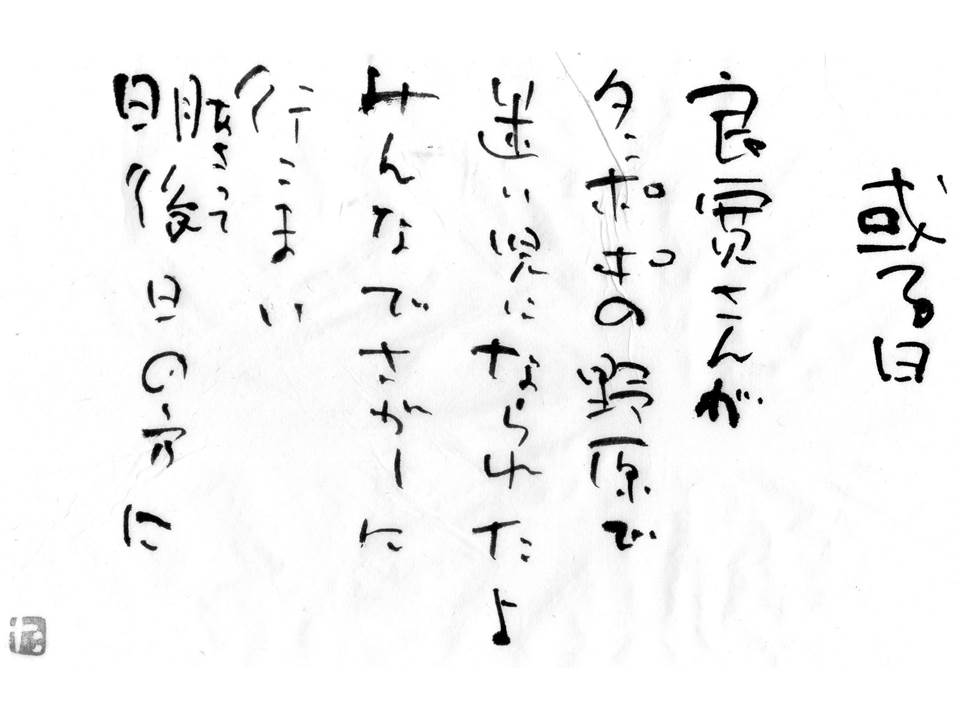 或る日
良寛さんが
タンポポの野原で
迷い児になられたよ
みんなでさがしに
行こまい
あさって
明後日の方に